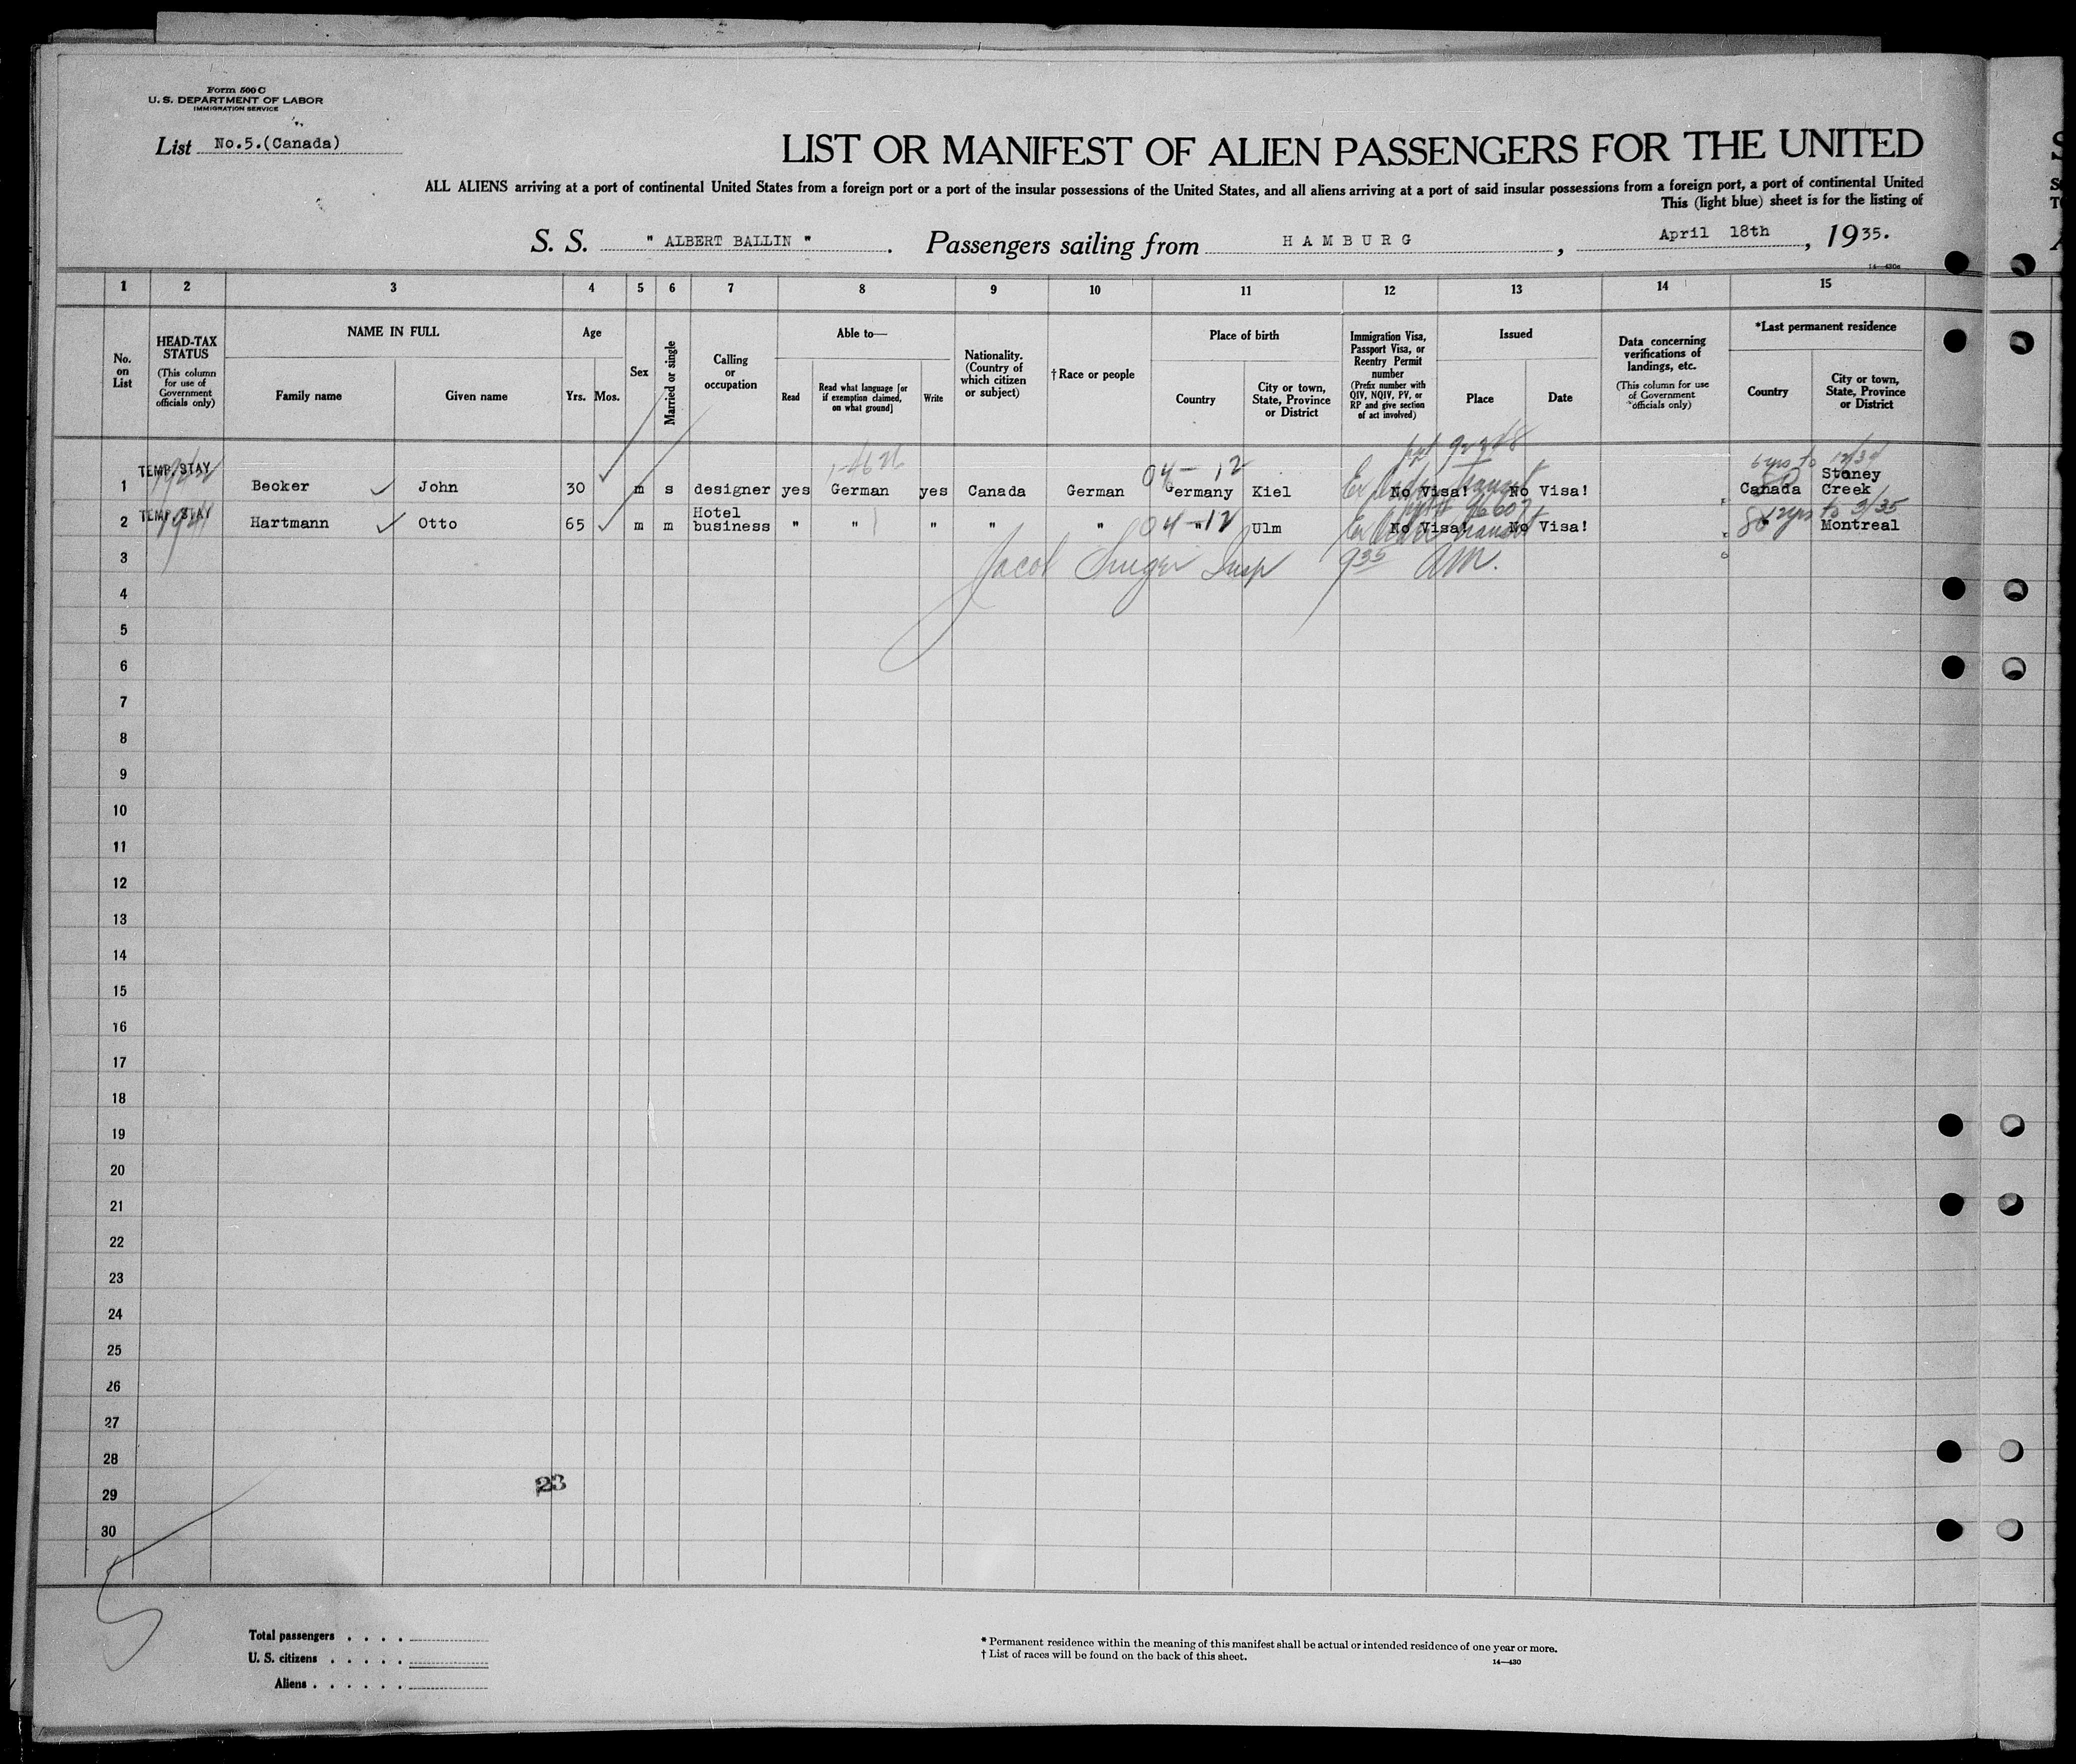 Form 500 C
U. S. DEPARTMENT OF LABOR
IMMIGRATION SERVICE
List No.5.(Canada)
LIST OR MANIFEST OF ALIEN PASSENGERS FOR THE UNITED
ALL ALIENS arriving at a port of continental United States from a foreign port or a port of the insular possessions of the United States, and all aliens arriving at a port of said insular possessions from a foreign port, a port of continental United
This (light blue) sheet is for the listing of
S. S. " ALBERT BALLIN " . Passengers sailing from HAMBURG , April 18th , 1935.
1 2 3 4 5 6 7 8 9 10 11 12 13 14 15
No. on List
HEAD-TAX STATUS
(This column for use of Government officials only)
NAME IN FULL
Family name
Given name
Age
Yrs. Mos.
Sex
Married or single
Calling or occupation
Able to—
Read
Read what language [or if exemption claimed, on what ground]
Write
Nationality. (Country of which citizen or subject)
†Race or people
Place of birth
Country
City or town, State, Province or District
Immigration Visa, Passport Visa, or Reentry Permit number
(Prefix number with QIV, NQIV, PV, or RP and give section of act involved)
Issued
Place
Date
Data concerning verifications of landings, etc.
(This column for use of Government officials only)
*Last permanent residence
Country
City or town, State, Province or District
04 - 12
6 yrs to 12/34
1 TEMP. STAY Becker John 30 m s designer yes German yes Canada German Germany Kiel No Visa! No Visa! Canada Stoney Creek
04 - 12
12yrs to 3/35
2 TEMP. STAY Hartmann Otto 65 m m Hotel business " " " " " " Ulm No Visa! No Visa! Montreal
3 Jacob Insp 9 35 AM.
4
5
6
7
8
9
10
11
12
13
14
15
16
17
18
19
20
21
22
23
24
25
26
27
28
29
23
30
Total passengers . . . .
U. S. citizens . . . . .
Aliens . . . . . .
* Permanent residence within the meaning of this manifest shall be actual or intended residence of one year or more.
† List of races will be found on the back of this sheet.
14—430